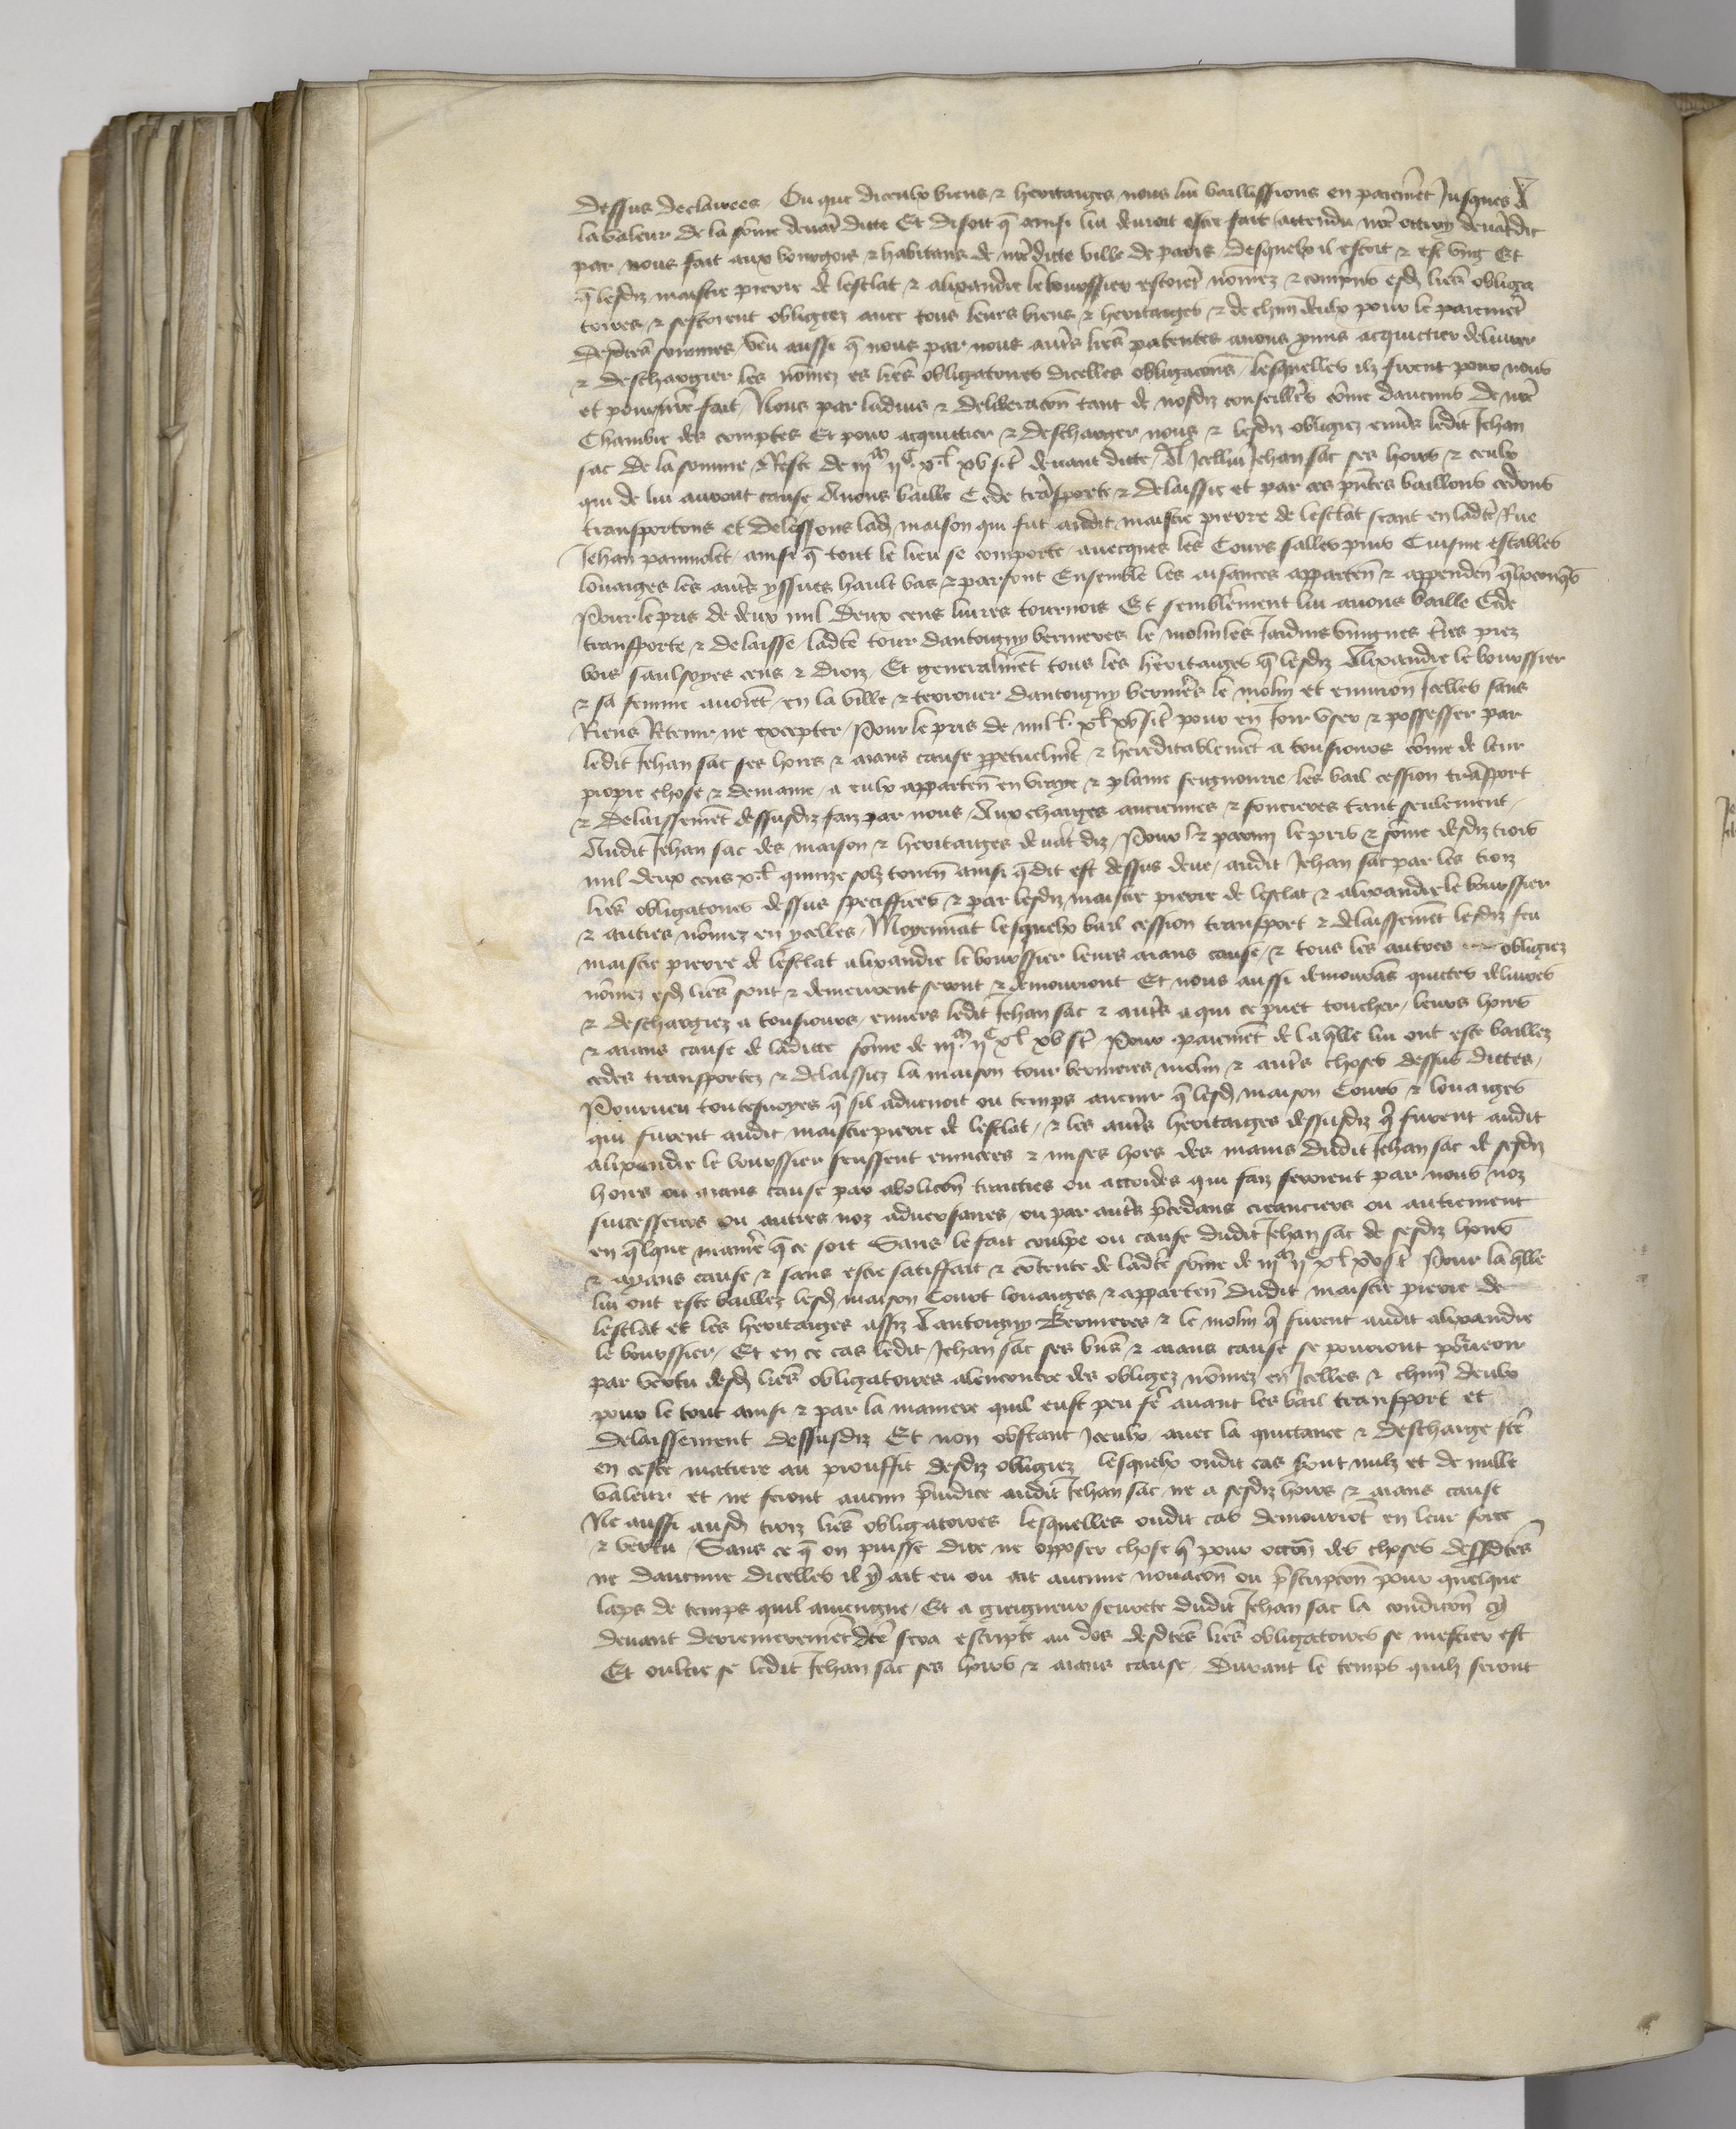 dessus declarees / Ou que diceulx biens & heritaiges nous lui baillissions en paiemēt Jusques A
la valeur de la sōme deuāt ditte Et disoit q̄ ainsi lui deuoit estre fait / attendu nr̄e ottroy deuāt dit
par nous fait aux bourgois & habitans de nr̄e ditte ville de paris / Desquelx il estoit & est vng Et
q̄ lesdiz maistre pierre de lesclat & alixandre le boursier estoiēt nōmez & compris esd̄ l̄res obliga
toires / & sestoient obligiez auec tous leurs biens & heritaiges & de chūn deulx pour le paiemēt
desd̄tes sommes / veu aussi q̄ nous par nous aut̄s l̄res patentes auons p̄mis acquictier deliurer
& deschargier les nōmez es l̄res obligatoires dicelles obligacōns / lesquelles ilz firent pour nous
et pour nr̄e fait / Nous par laduis & deliberacōn tant de nosdiz conseilliers cōme daucuns de nr̄e
Chambre des comptes Et pour acquittier & descharger nous & lesdiz obligez enuers ledit Jehan
sac de la somme & Reste de iijm ijC xl l xv s t̄ deuant ditte / A Jcellui Jehan sac ses hoirs & ceulx
qui de lui auront cause Auons baillie Cede trāsporte & delaissie et par ces p̄ntes baillons cedons
transportons et delessons lad̄ maison qui fut audit maistre pierre de lesclat seant en lad̄te Rue
Jehan painmolet / ainsi q̄ tout le lieu se comporte auecques les Cours salles puis Cuisine estables
louaiges les aut̄s yssues hault bas & parfont Ensemble les aisances apparten̄ & appenden̄ q̄lxconq̄s
Pour le pris de deux mil deux cens liures tournois Et semblēment lui auons baillie Cede
transporte & delaisse lad̄te tour dantoigny berneres le molin les Jardins vingnes t̄res prez
bois saulsoyes cens & diez / Et generalmēt tous les heritaiges q̄ lesdiz Alixandre le boursier
& sa femme auoiēt en la ville & terrouer dantoigny bernēres le molin et enuiron Jcelles sans
Riens Retenir ne excepter / Pour le pris de mil l. xl l xv s t̄ pour en Joir vser & possesser par
ledit Jehan sac ses hoirs & aians cause p̄petuelmēt & hereditablemēt a tousiours cōme de leur
propre chose & demaine / a eulx apparten̄ en vraye & plaine seignourie / les bail cession trāsport
& delaissemēt dessusdiz faiz par nous / Aux charges anciennes & foncieres tant seulement /
Audit Jehan sac des maison & heritaiges deuāt diz / Pour & parmi le pris & sōme desdiz trois
mil deux cens xl l quinze solz tourn̄ ainsi q̄ dit est dessus deue / audit Jehan sac par les troiz
l̄res obligatoires dessus speciffiees & par lesdiz maistre pierre de lesclat & alixandre le boursier
& autres nōmez en ycelles / Moyennāt lesquelx bail cession transport & delaissemēt lesdiz feu
maistre pierre de lesclat alixandre le boursier leurs aians cause / & tous les autres obligiez
nōmez esd̄ l̄res sont & demeurent seront & demourront Et nous aussi demourōs quictes deliures
& deschargiez a tousiours / enuers ledit Jehan sac & aut̄s a qui ce puet toucher / leurs hoirs
& aians cause de laditte sōme de iijm ijC xl l xv s t̄ Pour paiemēt de laq̄lle lui ont este baillez
cedez transportez & delaissiez la maison tour berneres molin & aut̄s choses dessus dittes /
Pourueu toutesuoyes q̄ sil aduenoit ou temps auenir q̄ lesd̄ maison Cours & louaiges
qui furent audit maistre pierre de lesclat / & les aut̄s heritaiges dessusdiz q̄ furent audit
alixandre le boursier feussent euincees & mises hors des mains dudit Jehan sac de sesdiz
hoirs ou aians cause par abolicōn traictes ou accordes qui faiz seroient par nous noz
successeurs ou autres noz aduersaires / ou par aut̄s p̄cedans creanciers ou autrement
en q̄lque maniēre q̄ ce soit Sans le fait coulpe ou cause dudit Jehan sac de sesdiz hoirs
& ayans cause & sans estre satisfait & cōtente de lad̄te sōme de iijm ijC xl l xv s t̄ Pour laq̄lle
lui ont este baillez lesd̄ maison Court louaiges & apparten̄ dudit maistre pierre de
lesclat et les heritaiges assiz A antoigny Berneres & le molin q̄ furent audit alixandre
le boursier / Et en ce cas ledit Jehan sac ses hoirs & aians cause se pourront pourueoir
par vertu desd̄ l̄res obligatoires alencontre des obligez nōmez en Jcelles & chūn deulx
pour le tout ainsi & par la maniere quil eust peu fē auant les bail transport et
delaissement dessusdiz Et non obstant Jceulx auec la quictance & descharge fc̄e
en ceste matiere au prouffit desdiz obligiez lesquelx oudit cas sont nulz et de nulle
valeur et ne feront aucun p̄iudice audit Jehan sac ne a sesdiz hoirs & aians cause
Ne aussi ausd̄ troiz l̄res obligatoires lesquelles oudit cas demourrōt en leur force
& vertu / Sans ce q̄ on puisse dire ne opposer chose q̄ pour occōn des choses dessd̄tes
ne daucune dicelles il y ait eu ou ait aucune nouacōn ou p̄scripcōn pour quelque
laps de temps quil auiengne / Et a greigneur seurete dudit Jehan sac la condicōn cy
deuant derrenieremēt d̄te sera escripte au dos desd̄tes l̄res obligatoires se mestier est
Et oultre se ledit Jehan sac ses hoirs & aians cause / Durant le temps quilz seront